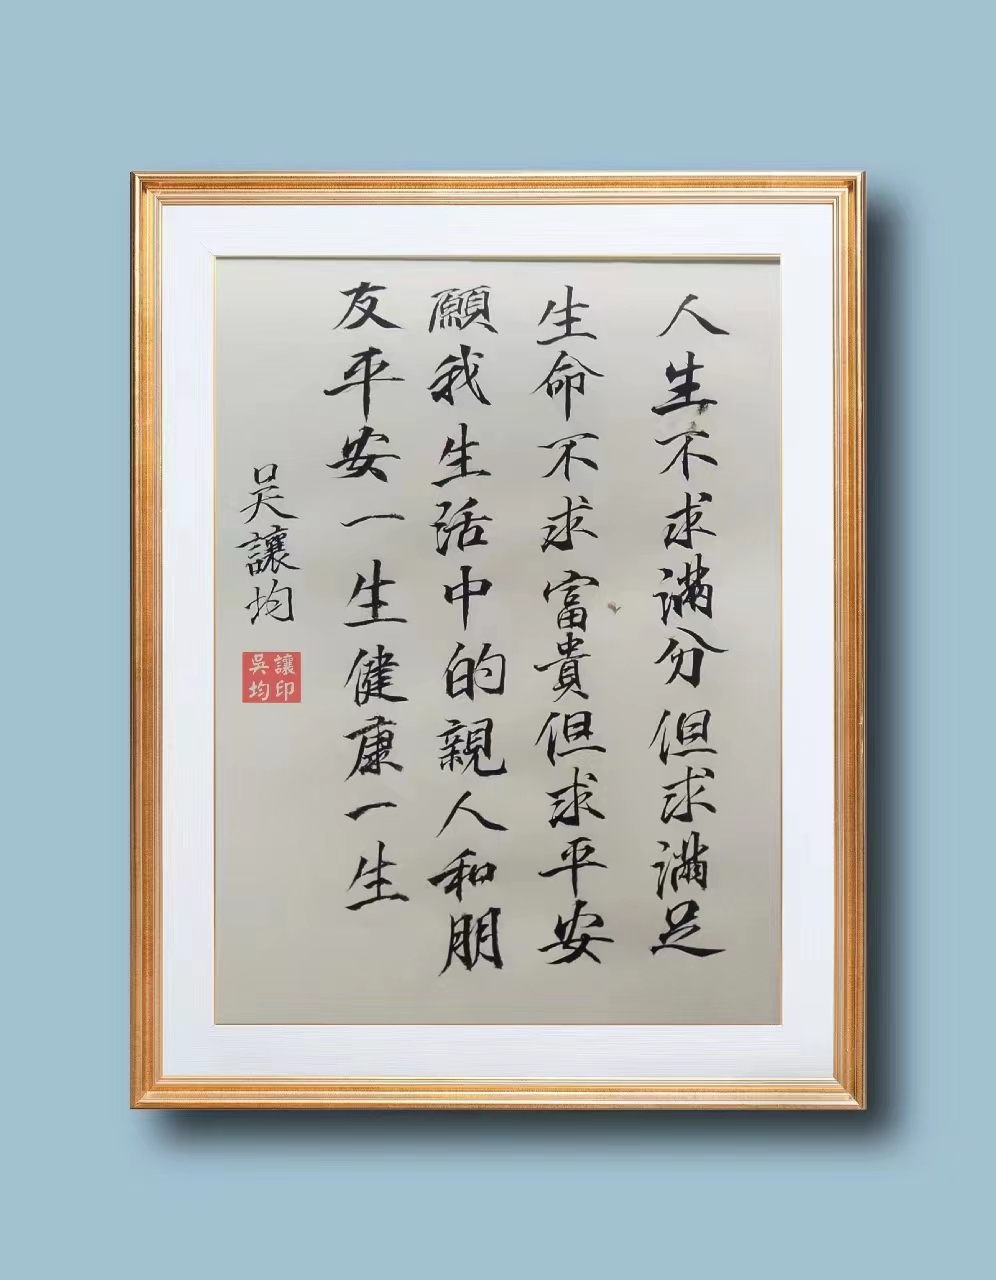 人生不求满分但求满足
生命不求富貴但求平安
願我生活中的親人和朋
友平安一生健康一生
吴讓均
讓印
吳均